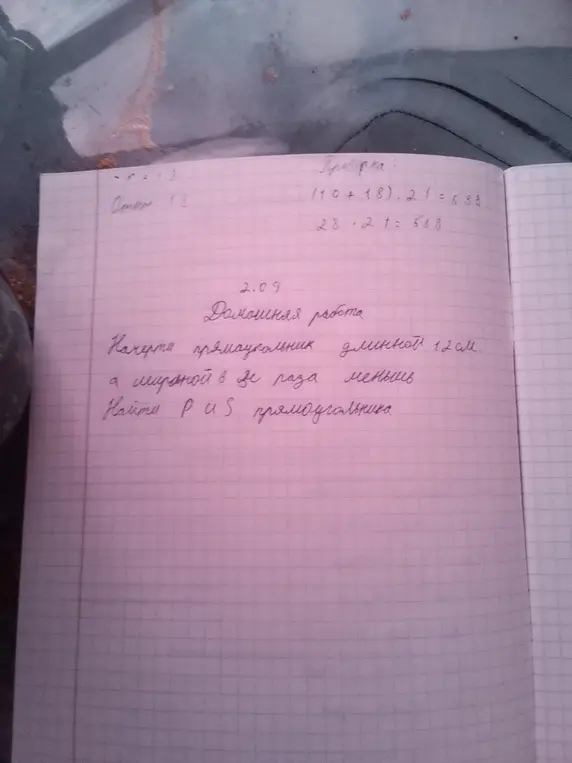 Проверка:
(10 + 18) · 21 = 588
Ответ 18
28 · 21 = 588
2.09
Домашняя работа
Начерти прямоугольник длинной 12 см
а шириной в раза меньшь
Найти P и S прямоугольника